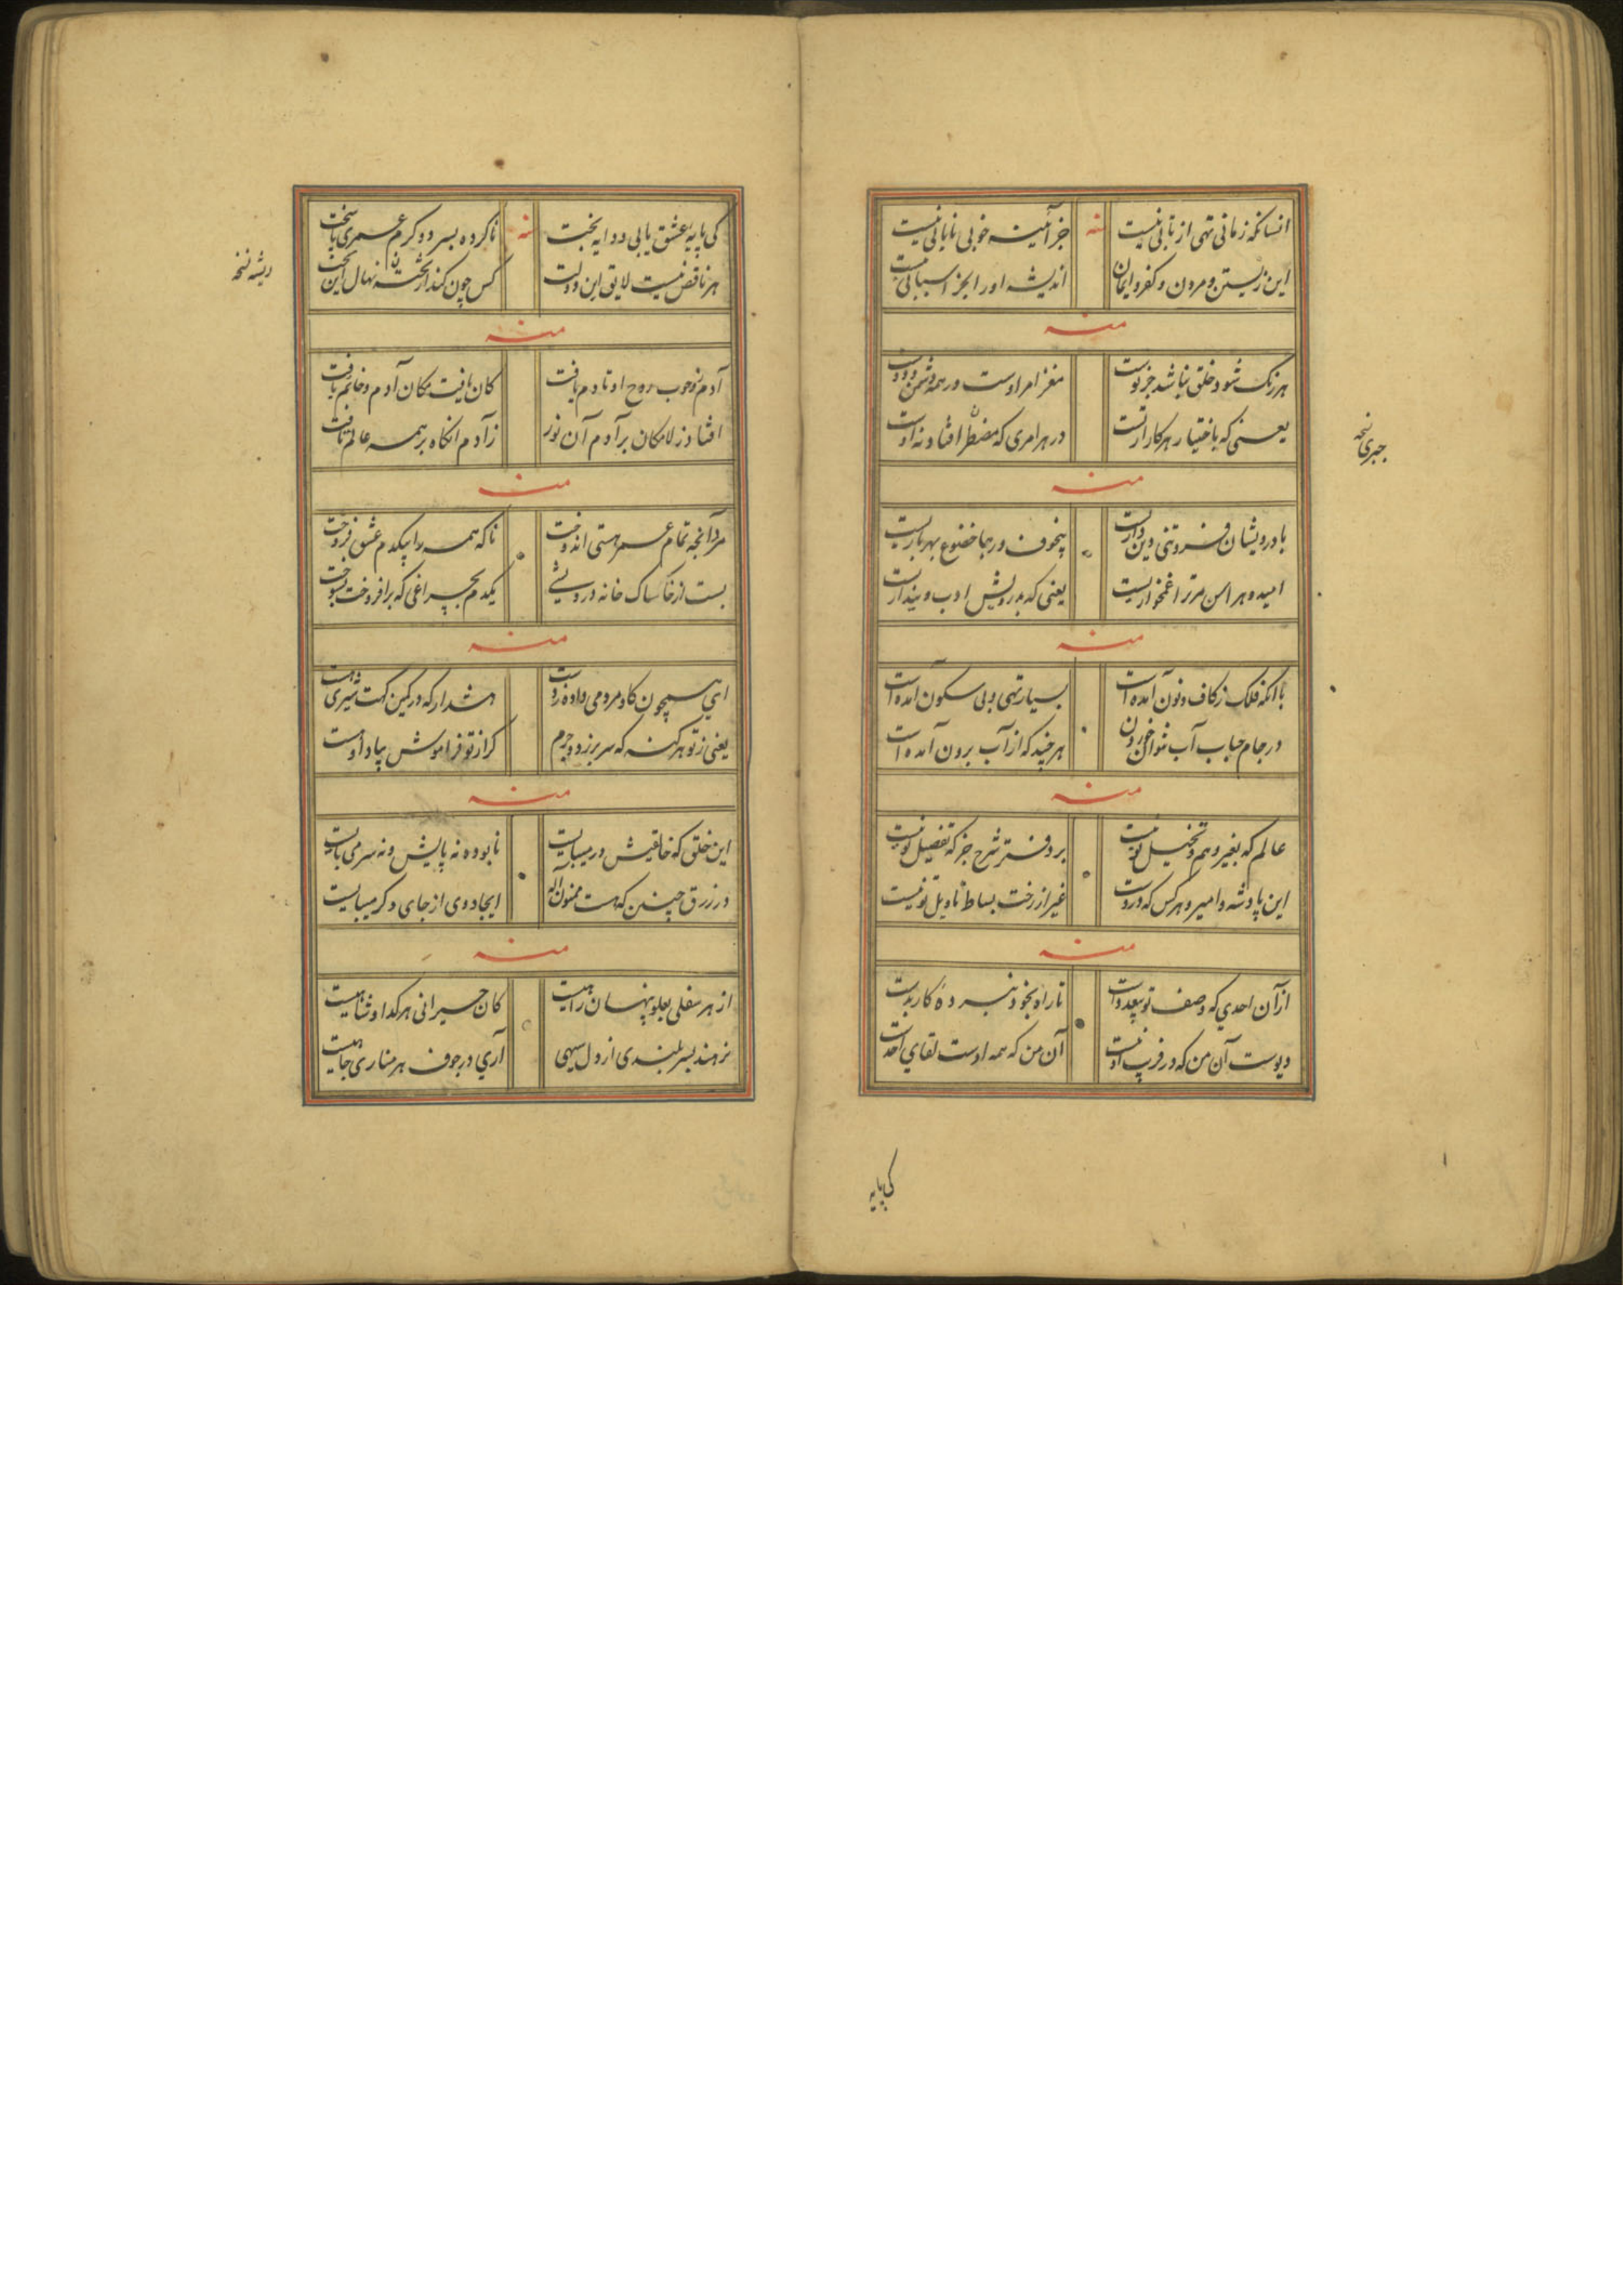 انسانکه زمانی تهی از تابی نیست
جز آمینه خوبی نایابی نیست
این زیستن و مردن و کفر و ایمان
اندیشه اور ابجز اسبابی نیست
منه
هر رنک شود خلق نباشد جز پوست
مغز امر اوست در همه دشمن و دوست
یعنی که باختیار هر کار ازتست
در هر امری که مضطر افتاد نه اوست
جبری نسخه
منه
با درویشان فروتنی دین داریست
بیخوف و رجا خضوع بهر باریست
امید و هراس مر ترا غمخواریست
یعنی که بدرویش ادب دینداریست
منه
با آنکه فلک ز کاف و نون آمده است
بسیار تهی و بی سکون آمده است
در جام حباب آب نتوان خوردن
هر چند که از آب برون آمده است
منه
عالم که بغیر وهم و تخییل تو نیست
بر دفتر شرح جز که تفصیل تو نیست
این پادشه و امیر و هر کس که دروست
غیر از رخت بساط تاویل تو نیست
منه
از آن احدی که وصف تو بیعددست
تا راه بخود نبرده کار بدست
دیوست آن من که در فریب او نیست
آن من که همه اوست لقای احدست
کی پایه
کی پایه عشق یابی دد ایه بخت
ناکرده بسر دو کرم عمری باخت
هر ناقص نیست لایق این دولت
کس چون کند نهال این
ریشه نسخه
منه
آدم ز وجوب روح او تا دم یافت
کان یافت مکان آدم و خاتم یافت
افتاد ز لامکان بر آدم آن نور
ز آدم انکاه بر همه عالم تافت
منه
مرد آنچه تمام عمر هستی اندوخت
تا که همه را بیکدم عشق فروخت
بست از خاشاک خانه درویشی
یکدم بچراغی که برافروخت بسوخت
منه
ای همچون کاو مردمی داده ز دست
هشدار که در کمین کهت شیری هست
یعنی ز تو هر کنه که سر برزد و جرم
کر از تو فراموش بیاد او هست
منه
این خلق که خالقیش در میبایست
نابوده نه پایش و نه سر می بایست
در رزق چنین که هست ممنون اله
ایجاد وی از جای دکر میبایست
منه
از هر سفلی بعلو پنهان راهیست
کان حیرانی هر کدا و شاهیست
نرهند بسر بلندی از دل سیهی
آری در جوف هر مناری چاهیست